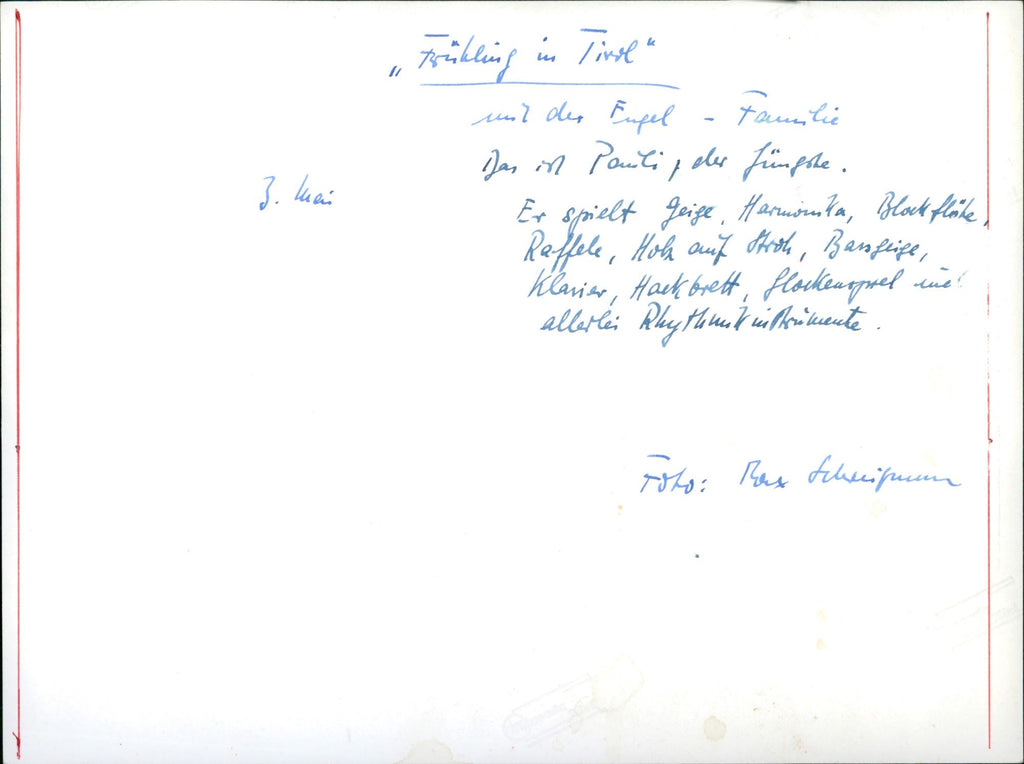 „Frühling in Tirol“
mit der Engel – Familie
Das ist Pauli, der Jüngste.
3. Mai
Er spielt Geige, Harmonika, Blockflöte,
Raffele, Holz auf Stroh, Bassgeige,
Klavier, Hackbrett, Glockenspiel und
allerlei Rhythmikinstrumente.
Foto: